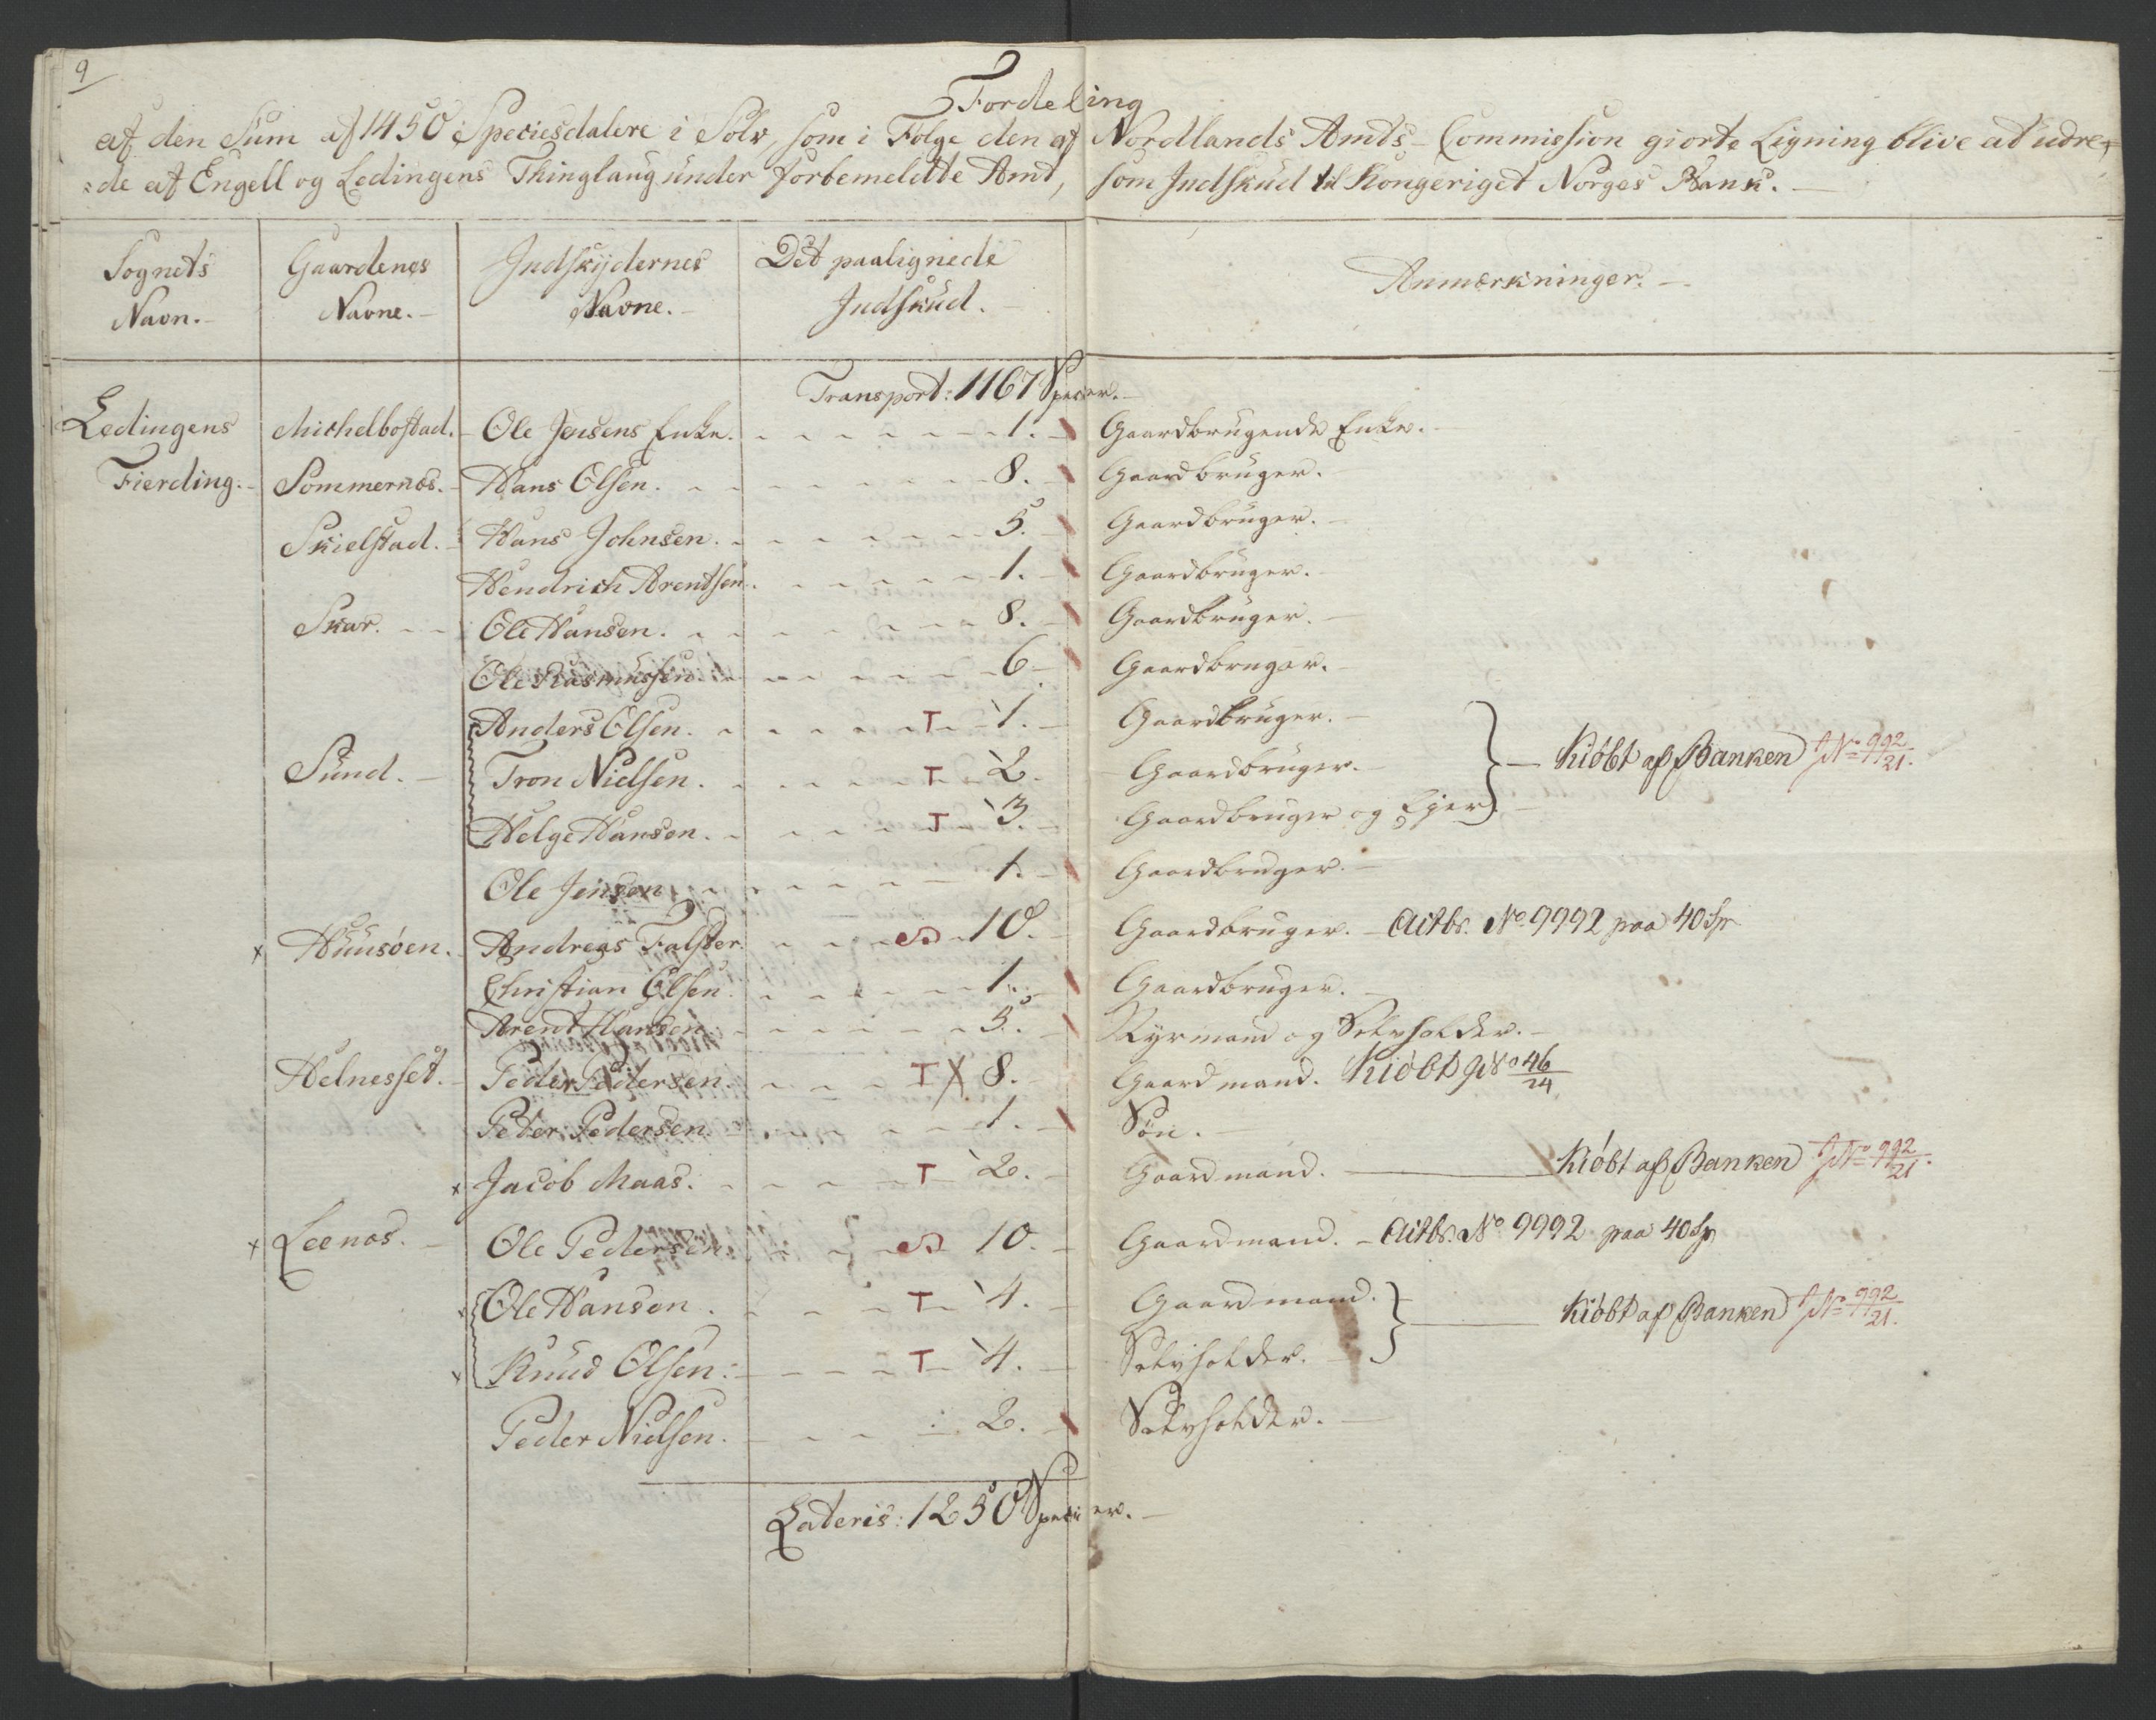 9
Fordeling
af den Sum af 1450 Speciesdalere i Sølv, som i Følge den af Nordlands Amts-Commission giorte Ligning blive at udre=
=de af Engell og Lødingens Thinglaug under forbemeldte Amt, som Indskud til Kongeriget Norges Bank.
Sognets Navn. Gaardenes Navne. Indskydernes Navne. Det paalignede Indskud. Anmærkninger.
Transport: 1167 Specier.
Lødingens Michelbostad. Ole Jensens Enke. 1. Gaardbrugende Enke.
Fierding. Sommernæs. Hans Olsen. 8. Gaardbruger.
Skielstad. Hans Johnsen. 5. Gaardbruger.
Hendrich Arentsen. 1. Gaardbruger.
Skar. Ole Hansen. 8. Gaardbruger.
Ole Rasmussen. 6. Gaardbruger.
Anders Olsen. T 1. Gaardbruger.
Sund. Tron Nielsen. T 2. Gaardbruger. Kiøbt af Banken JN° 992/21.
Helge Hansen. T 3. Gaardbruger og Ejer.
Ole Jensen. 1. Gaardbruger.
x Huusøen. Andreas Falster. 10. Gaardbruger. Actbr. N° 9992 paa 40 Sp
Christian Olsen. 1. Gaardbruger.
Arent Hansen. 5. Styrmand og Selvholder.
Helnesset. Peder Pedersen. T X 8. Gaardmand. Kiøbt JN° 46/24
Peter Pedersen. 1. Søn.
x Jacob Maas. T 2. Gaardmand. Kiøbt af Banken JN° 992/21.
x Leenæs. Ole Pedersen. 10. Gaardmand. Actbr. N° 9992 paa 40 Sp
x Ole Hansen. T 4. Gaardmand. Kiøbt af Banken JN° 992/21.
x Knud Olsen. T 4. Selvholder.
Peder Nielsen. 2. Selvholder.
Lateris: 1250 Specier.